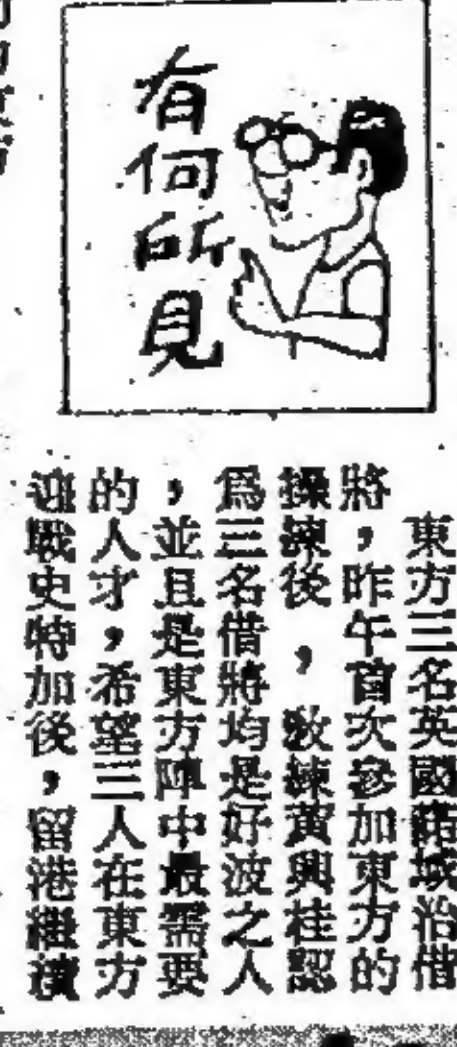 有何所見
東方三名英國諾域治借
將，昨午首次參加東方的
操練後，教練黃興桂認
爲三名借將均是好波之人
，並且是東方陣中最需要
的人才，希望三人在東方
迎戰史特加後，留港繼續